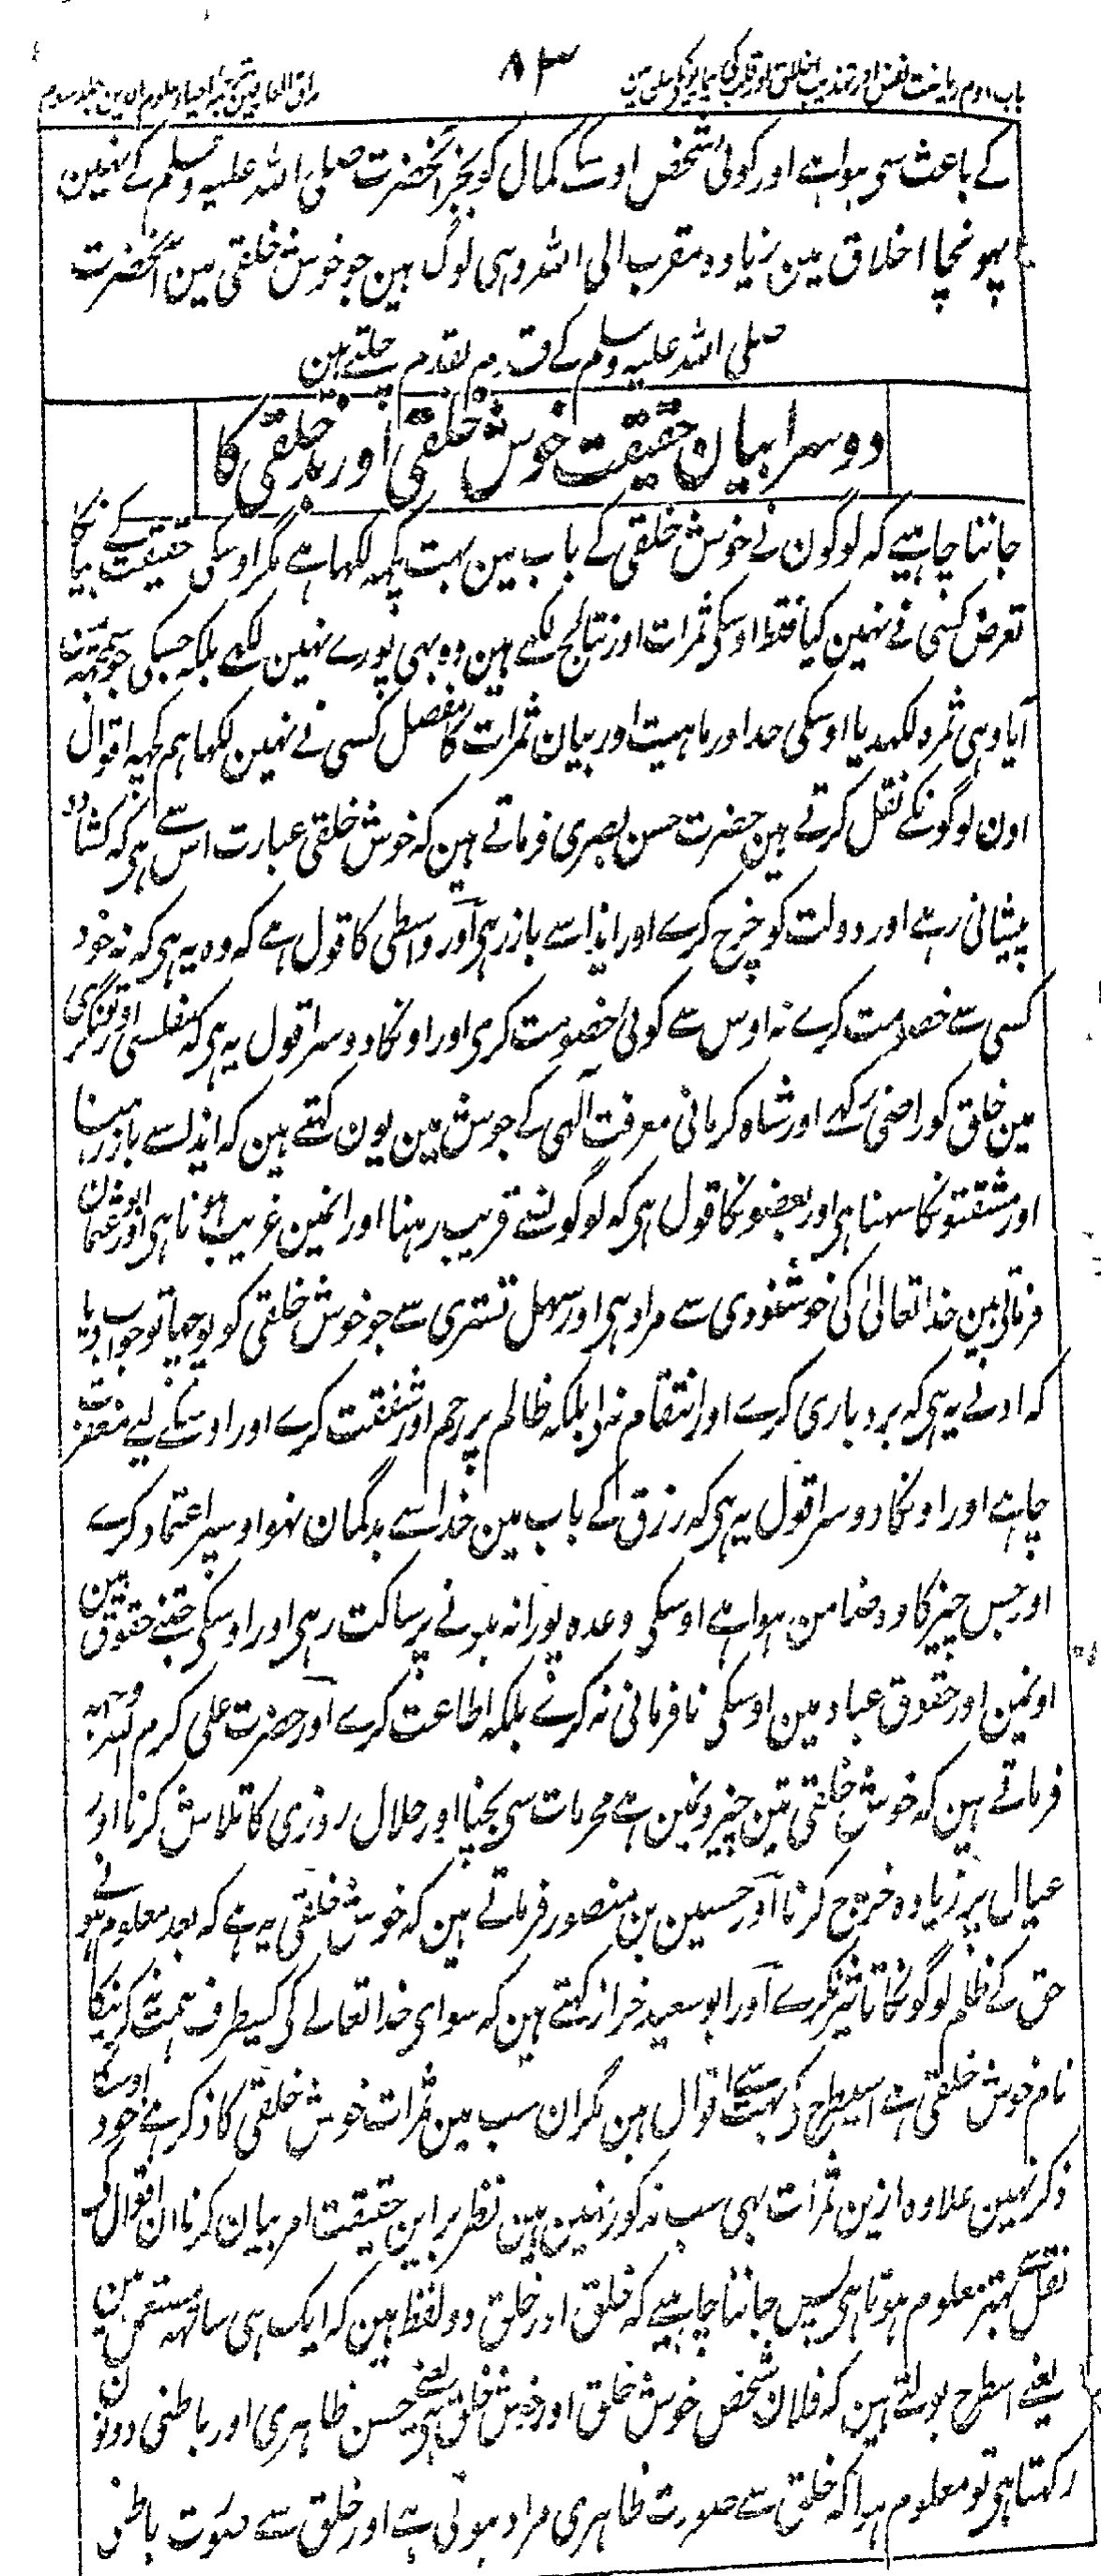 باب دوم ریاضت نفس اور تہذیب اخلاق اور قلب کی بیماریونکی
۸۳
مذاق العارفین ترجمہ احیاء علوم الدین جلد سوم
کے باعث سی ہوا ہے اور کوئی شخص اوسکے کمال کو بجز آنحضرت صلی اللہ علیہ وسلم کے نہین
پہونچا اخلاق مین زیادہ مقرب الی اللہ وہی لوگ ہین جو خوش خلقی مین آنحضرت
صلی اللہ علیہ وسلم کے قدم بقدم چلتے ہین
دوسرا بیان حقیقت خوش خلقی اور بد خلقی کا
جاننا چاہیے کہ لوگون نے خوش خلقی کے باب مین بہت کچہہ لکہا ہے مگر اوسکی حقیقت کے بیان کا
تعرض کسی نے نہین کیا فقط اوسکی ثمرات اور نتائج لکھے ہین وہ بہی پورے نہین لکھے بلکہ جسکی جو سمجہہ مین
آیا وہی ثمرہ لکہدیا اوسکی حد اور ماہیت اور بیان ثمرات کا مفصل کسی نے نہین لکہا ہم کچہہ اقوال
اون لوگونکے نقل کرتے ہین حضرت حسن بصری فرماتے ہین کہ خوش خلقی عبارت اس سے ہی کہ کشادہ
پیشانی رہے اور دولت کو خرچ کرے اور ایذا سے باز رہی اور واسطی کا قول ہے کہ وہ یہ ہی کہ نہ خود
کسی سے خصومت کرے نہ اوس سے کوئی خصومت کری اور اونکا دوسرا قول یہ ہی کہ مفلسی اور تونگری
مین خلق کو راضی رکہے اور شاہ کرمانی معرفت آلہی کے جوش مین یون کہتے ہین کہ ایذا سے باز رہنا
اور مشقتونکا سہنا ہی اور بعضونکا قول ہی کہ لوگونسے قریب رہنا اور انمین غریب ہونا ہی اور ابو عثمان
فرماتی ہین خدا تعالی کی خوشنودی سے مراد ہی اور سہل تستری سے جو خوش خلقی کو پوچہا تو جواب دیا
کہ ادنے یہ ہی کہ بردباری کرے اور انتقام نہ لے بلکہ ظالم پر رحم اور شفقت کرے اور اوسکے لیے مغفرت
چاہے اور اونکا دوسرا قول یہ ہی کہ رزق کے باب مین خدا سے بدگمان نہو اوسپر اعتماد کرے
اور جس چیز کا وہ ضامن ہوا ہے اوسکی وعدہ پورا نہ ہونے پر ساکت رہی اور اوسکی جتنے حقوق ہین
اونمین اور حقوق عباد مین اوسکی نافرمانی نہ کرے بلکہ اطاعت کرے اور حضرت علی کرم اللہ وجہہ
فرماتے ہین کہ خوش خلقی تین چیزونمین ہے محرمات سی بچنا اور حلال روزی کا تلاش کرنا اور
عیال پر زیادہ خرچ کرنا اور حسین بن منصور فرماتے ہین کہ خوش خلقی یہ ہے کہ بعد معلوم ہونے
حق کے ظلم لوگونکا تاثیر نکرے اور ابو سعید خراز کہتے ہین کہ سوای خدا تعالے کی کیطرف ہمت نہ کرنیکا
نام خوش خلقی ہے اسیطرح کے بہت سے اقوال ہین مگر ان سب مین ثمرات خوش خلقی کا ذکر ہے خود اوسکا
ذکر نہین علاوہ ازین ثمرات بہی سب مذکور نہین ہین نظر برین حقیقت امر بیان کرنا ان اقوال کی
نقل سے بہتر معلوم ہوتا ہی پس جاننا چاہیے کہ خَلق اور خُلق دو لفظ ہین کہ ایک ہی ساتہہ مستعمل ہین
یعنے اسطرح بولتے ہین کہ فلان شخص خوش خلق اور خوش خلق ہی یعنے حسن ظاہری اور باطنی دونون
رکہتا ہی تو معلوم ہوا کہ خلق سے صورت ظاہری مراد ہوتی ہے اور خلق سے صورت باطنی